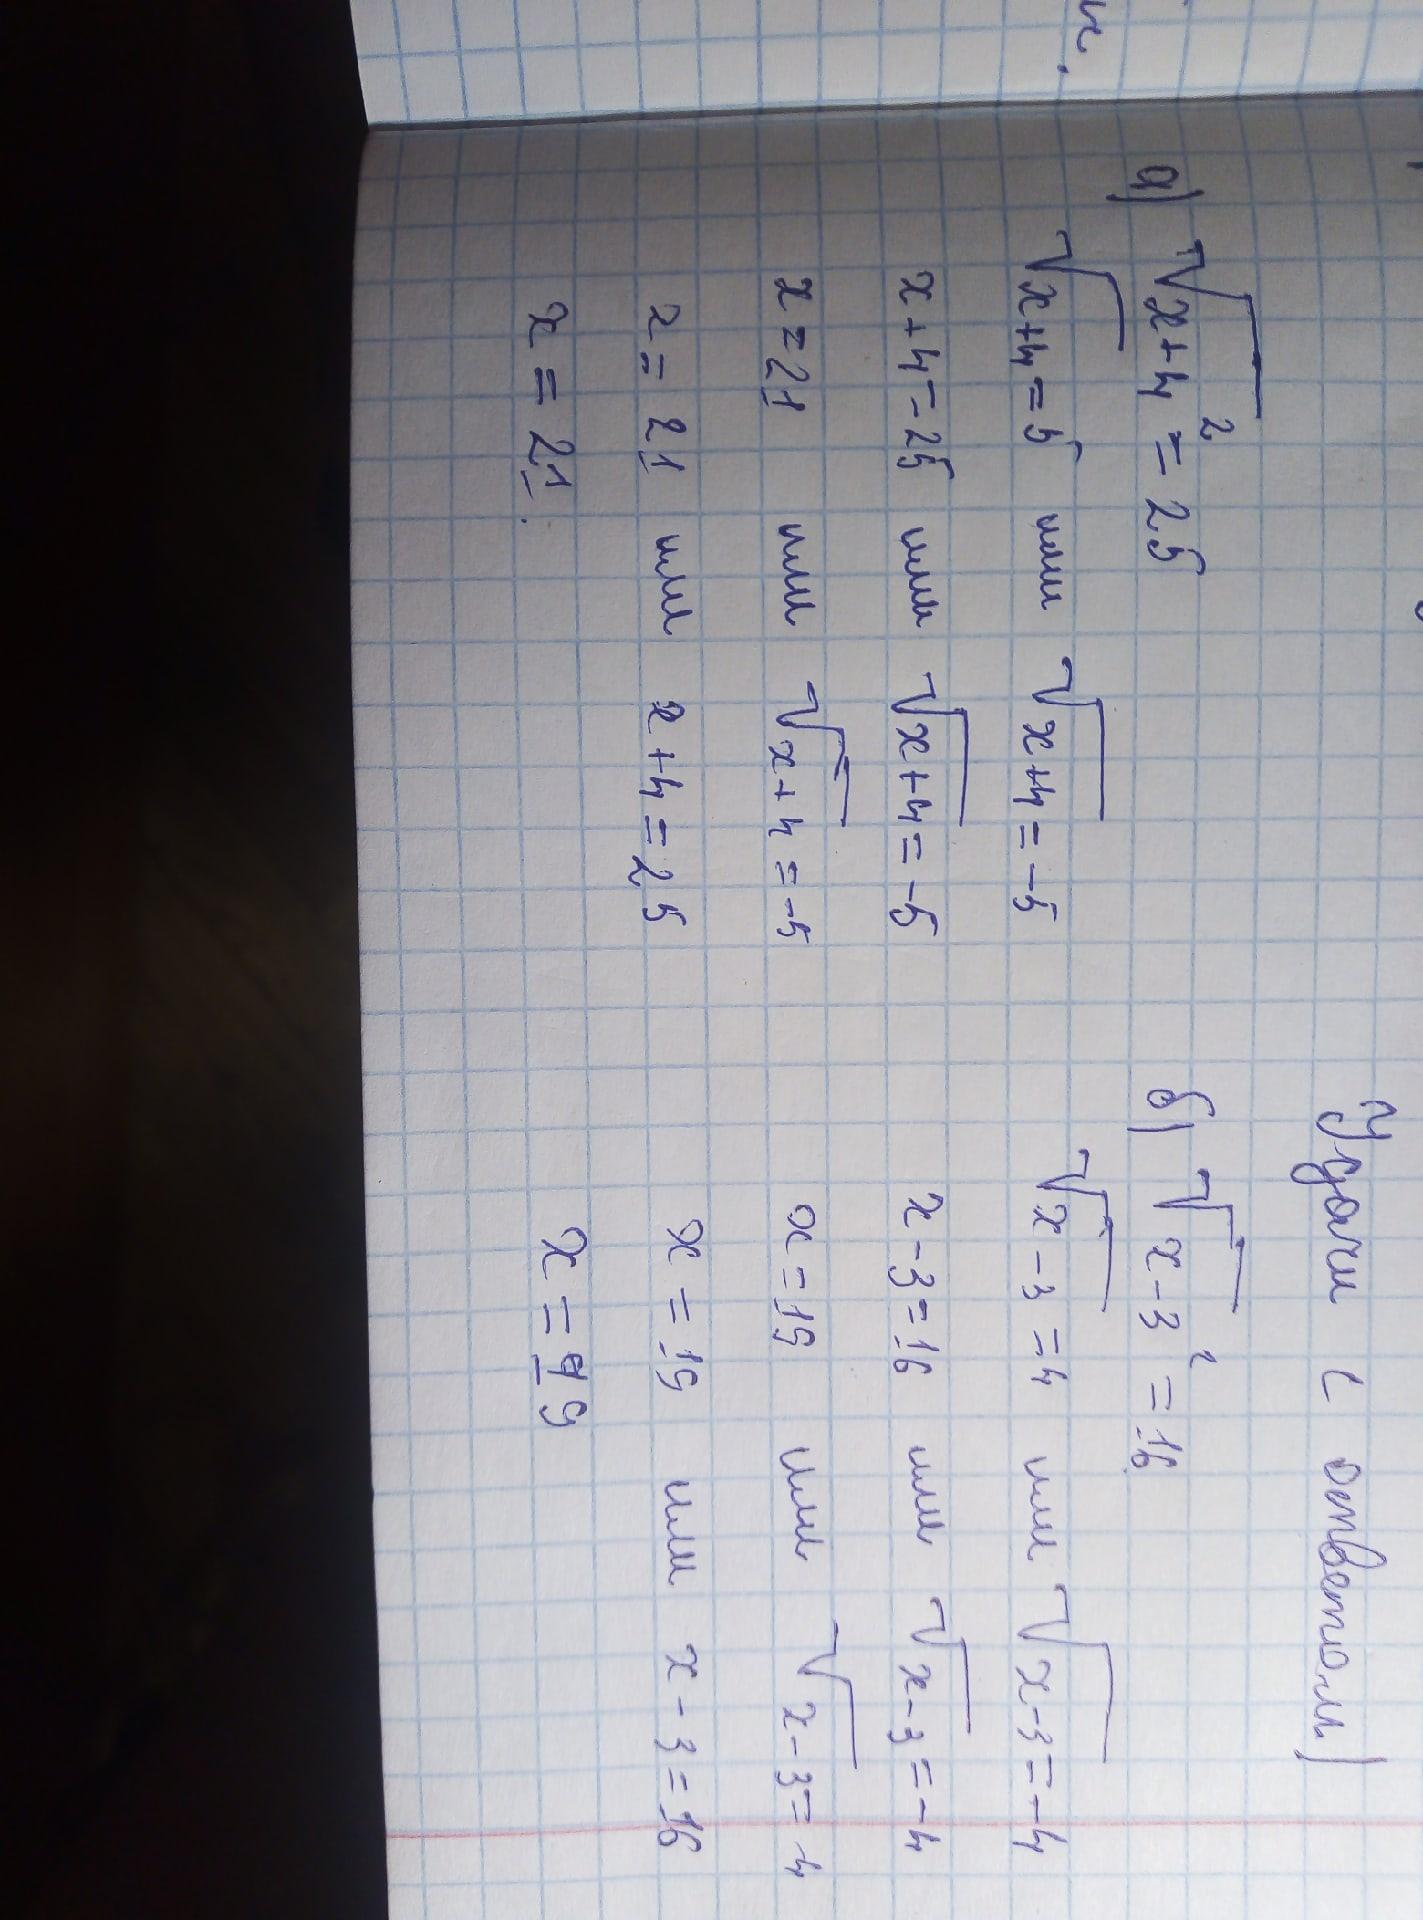 Удачи с ответом)
а) √x+4² = 25
√x+4 = 5 или √x+4 = -5
x+4=25 или √x+4 = -5
x=21 или √x+4 = -5
x = 21 или x+4 = 25
x = 21.
б) √x-3² = 16
√x-3 = 4 или √x-3 = -4
x-3=16 или √x-3 = -4
x=19 или √x-3 = -4
x = 19 или x-3=16
x = 19